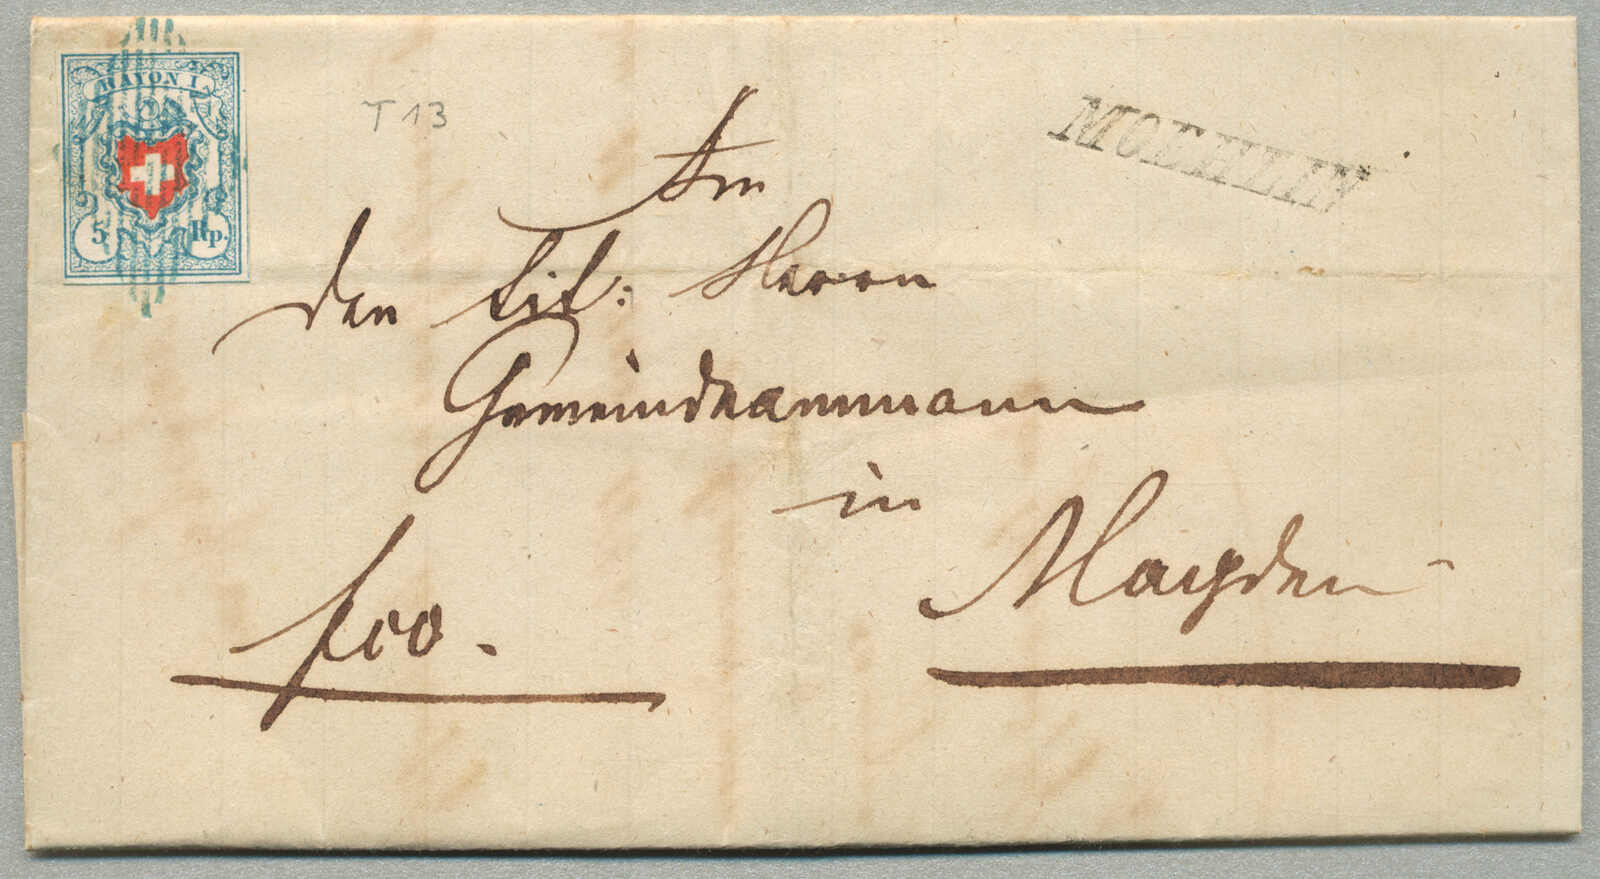 RAYON I.
5 Rp.
T 13
MOEHLIN
An
den Tit: Herrn
Gemeindeammann
in
Magden
fco.